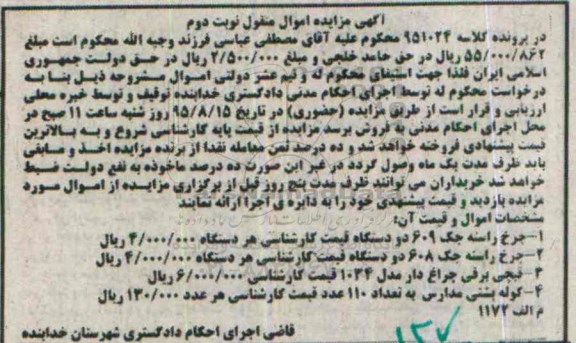 آگهی مزایده اموال منقول نوبت دوم
در پرونده کلاسه ۹۵۱۰۲۴ محکوم علیه آقای مصطفی عباسی فرزند وجیه الله محکوم است مبلغ
۵۵/۰۰۰/۸۶۲ ریال در حق حامد خلجی و مبلغ ۲/۵۰۰/۰۰۰ ریال در حق دولت جمهوری
اسلامی ایران فلذا جهت استیفای محکوم له و نیم عشر دولتی اموال مشروحه ذیل بنا به
درخواست محکوم له توسط اجرای احکام مدنی دادگستری خدابنده توقیف و توسط خبره محلی
ارزیابی و قرار است از طریق مزایده (حضوری) در تاریخ ۹۵/۸/۱۵ روز شنبه ساعت ۱۱ صبح در
محل اجرای احکام مدنی به فروش برسد مزایده از قیمت پایه کارشناسی شروع و به بالاترین
قیمت پیشنهادی فروخته خواهد شد و ده درصد ثمن معامله نقدا از برنده مزایده اخذ و مابقی
باید ظرف مدت یک ماه وصول گردد در غیر این صورت ده درصد ماخوذه به نفع دولت ضبط
خواهد شد خریداران می توانند ظرف مدت پنج روز قبل از برگزاری مزایده از اموال مورد
مزایده بازدید و قیمت پیشنهدی خود را به دایره ی اجرا ارائه نمایند
مشخصات اموال و قیمت آن:
۱-چرخ راسته جک ۶۰۹ دو دستگاه قیمت کارشناسی هر دستگاه ۴/۰۰۰/۰۰۰ ریال
۲-چرخ راسته جک ۶۰۸ دو دستگاه قیمت کارشناسی هر دستگاه ۴/۰۰۰/۰۰۰ ریال
۳-قیچی برقی چراغ دار مدل ۱۰۳۴ قیمت کارشناسی ۶/۰۰۰/۰۰۰ ریال
۴-کوله پشتی مدارس به تعداد ۱۱۰ عدد قیمت کارشناسی هر عدد ۱۳۰/۰۰۰ ریال
م الف ۱۱۷۲
قاضی اجرای احکام دادگستری شهرستان خدابنده
۱۳۷